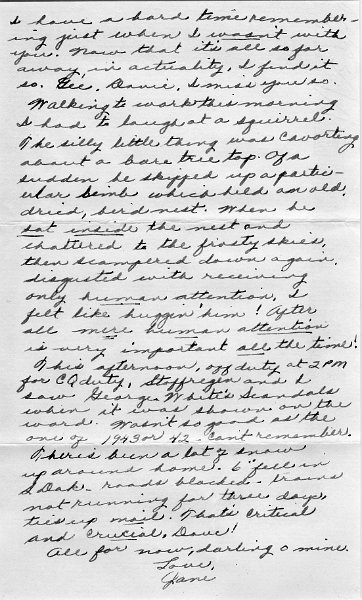 I have a hard time remember-
ing just when I wasn't with
you. Now that it's all so far
away, in actuality, I find it
so. Gee, Davie, I miss you so.
Walking to work this morning
I had to laugh at a squirrel.
The silly little thing was cavorting
about a bare tree top. Of a
sudden he skipped up a partic-
ular limb which held an old,
dried, bird nest. When he
sat inside the nest and
chattered to the frosty skies,
then scampered down again,
disgusted with receiving
only human attention, I
felt like huggin' him! After
all mere human attention
is very important all the time!
This afternoon, off duty at 2 PM
for CQ duty, and I
saw George White's Scandals
when it was shown on the
ward. Wasn't so good as the
one of 1943 or 42 - can't remember.
There's been a lot of snow
up around home. 6" fell in
S Dak - roads blocked - trains
not running for three days,
ties up mail. That's critical
and crucial, Dave!
All for now, darling o mine.
Love,
Jane